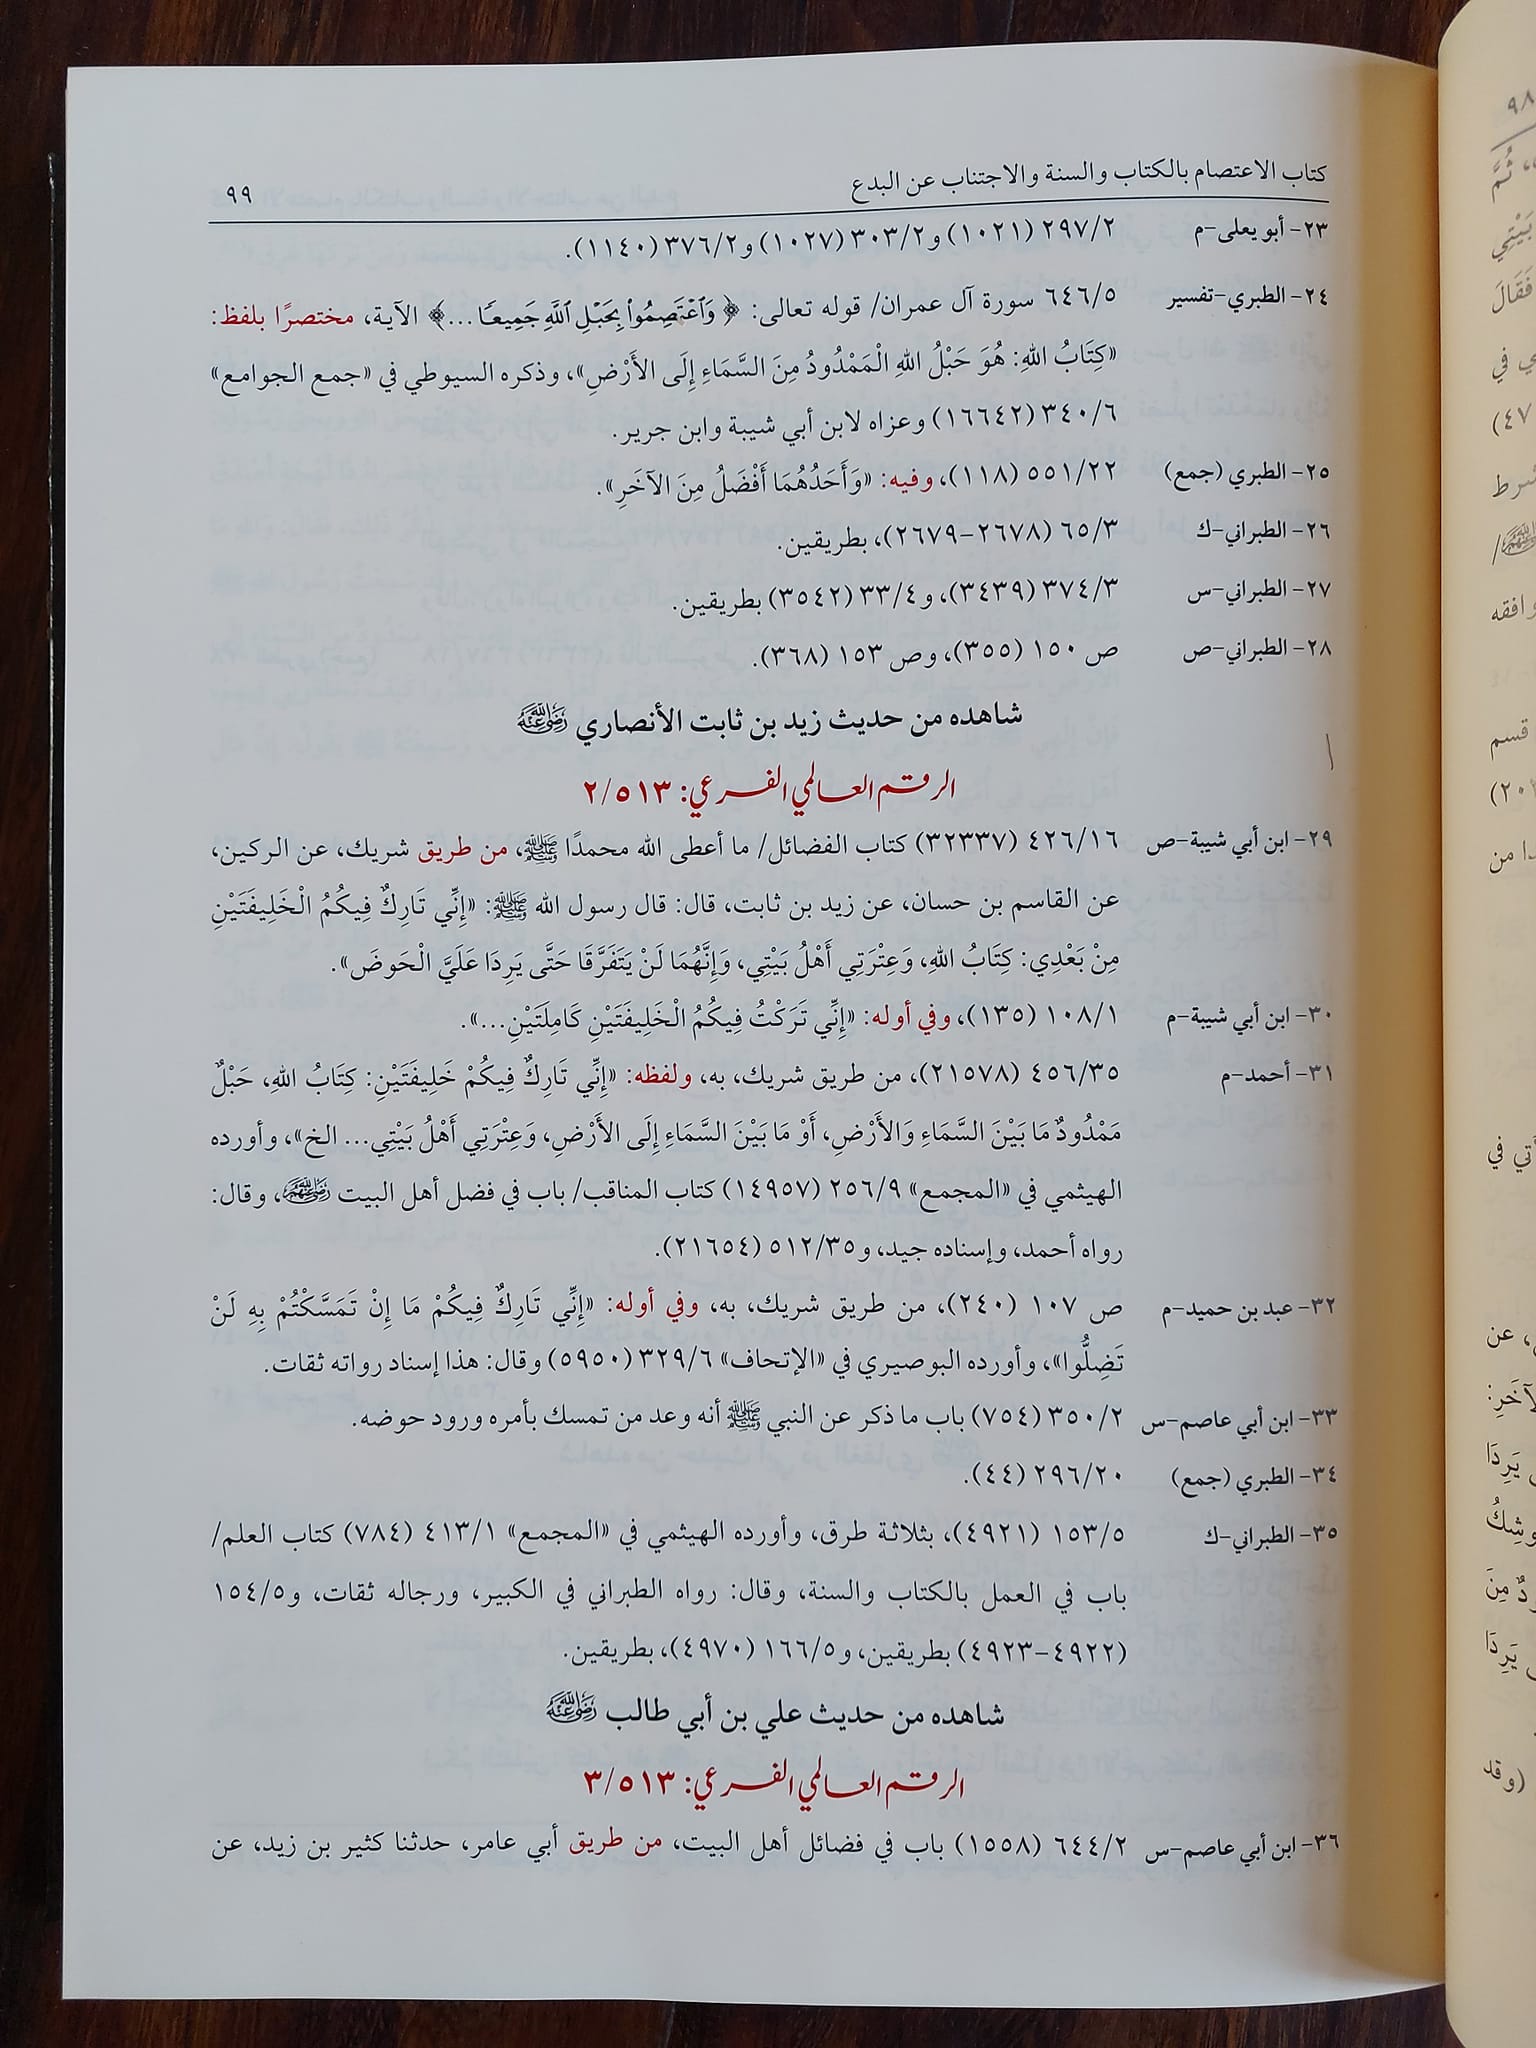 كتاب الاعتصام بالكتاب والسنة والاجتناب عن البدع ٩٩
٢٣- أبو يعلى-م ٢٩٧/٢ (١٠٢١) و٣٠٣/٢ (١٠٢٧) و٣٧٦/٢ (١١٤٠).
٢٤- الطبري-تفسير ٦٤٦/٥ سورة آل عمران/ قوله تعالى: ﴿ وَٱعۡتَصِمُواْ بِحَبۡلِ ٱللَّهِ جَمِيعٗا ...﴾ الآية، مختصرًا بلفظ:
«كِتَابُ اللهِ: هُوَ حَبْلُ اللهِ الْمَمْدُودُ مِنَ السَّمَاءِ إِلَى الأَرْضِ»، وذكره السيوطي في «جمع الجوامع»
٣٤٠/٦ (١٦٦٤٢) وعزاه لابن أبي شيبة وابن جرير.
٢٥- الطبري (جمع) ٥٥١/٢٢ (١١٨)، وفيه: «وَأَحَدُهُمَا أَفْضَلُ مِنَ الآخَرِ».
٢٦- الطبراني-ك ٦٥/٣ (٢٦٧٨-٢٦٧٩)، بطريقين.
٢٧- الطبراني-س ٣٧٤/٣ (٣٤٣٩)، و٣٣/٤ (٣٥٤٢) بطريقين.
٢٨- الطبراني-ص ص ١٥٠ (٣٥٥)، وص ١٥٣ (٣٦٨).
شاهده من حديث زيد بن ثابت الأنصاري رَضِيَ اللَّهُ عَنْهُ
الرقم العالمي الفرعي: ٢/٥١٣
٢٩- ابن أبي شيبة-ص ٤٢٦/١٦ (٣٢٣٣٧) كتاب الفضائل/ ما أعطى الله محمدًا ﷺ، من طريق شريك، عن الركين،
عن القاسم بن حسان، عن زيد بن ثابت، قال: قال رسول الله ﷺ: «إِنِّي تَارِكٌ فِيكُمُ الْخَلِيفَتَيْنِ
مِنْ بَعْدِي: كِتَابُ اللهِ، وَعِتْرَتِي أَهْلُ بَيْتِي، وَإِنَّهُمَا لَنْ يَتَفَرَّقَا حَتَّى يَرِدَا عَلَيَّ الْحَوضَ».
٣٠- ابن أبي شيبة-م ١٠٨/١ (١٣٥)، وفي أوله: «إِنِّي تَرَكْتُ فِيكُمُ الْخَلِيفَتَيْنِ كَامِلَتَيْنِ...».
٣١- أحمد-م ٤٥٦/٣٥ (٢١٥٧٨)، من طريق شريك، به، ولفظه: «إِنِّي تَارِكٌ فِيكُمْ خَلِيفَتَيْنِ: كِتَابُ اللهِ، حَبْلٌ
مَمْدُودٌ مَا بَيْنَ السَّمَاءِ وَالأَرْضِ، أَوْ مَا بَيْنَ السَّمَاءِ إِلَى الأَرْضِ، وَعِتْرَتِي أَهْلُ بَيْتِي... الخ»، وأورده
الهيثمي في «المجمع» ٢٥٦/٩ (١٤٩٥٧) كتاب المناقب/ باب في فضل أهل البيت رَضِيَ اللَّهُ عَنْهُم، وقال:
رواه أحمد، وإسناده جيد، و٥١٢/٣٥ (٢١٦٥٤).
٣٢- عبد بن حميد-م ص ١٠٧ (٢٤٠)، من طريق شريك، به، وفي أوله: «إِنِّي تَارِكٌ فِيكُمْ مَا إِنْ تَمَسَّكْتُمْ بِهِ لَنْ
تَضِلُّوا»، وأورده البوصيري في «الإتحاف» ٣٢٩/٦ (٥٩٥٠) وقال: هذا إسناد رواته ثقات.
٣٣- ابن أبي عاصم-س ٣٥٠/٢ (٧٥٤) باب ما ذكر عن النبي ﷺ أنه وعد من تمسك بأمره ورود حوضه.
٣٤- الطبري (جمع) ٢٩٦/٢٠ (٤٤).
٣٥- الطبراني-ك ١٥٣/٥ (٤٩٢١)، بثلاثة طرق، وأورده الهيثمي في «المجمع» ٤١٣/١ (٧٨٤) كتاب العلم/
باب في العمل بالكتاب والسنة، وقال: رواه الطبراني في الكبير، ورجاله ثقات، و١٥٤/٥
(٤٩٢٢-٤٩٢٣) بطريقين، و١٦٦/٥ (٤٩٧٠)، بطريقين.
شاهده من حديث علي بن أبي طالب رَضِيَ اللَّهُ عَنْهُ
الرقم العالمي الفرعي: ٣/٥١٣
٣٦- ابن أبي عاصم-س ٦٤٤/٢ (١٥٥٨) باب في فضائل أهل البيت، من طريق أبي عامر، حدثنا كثير بن زيد، عن